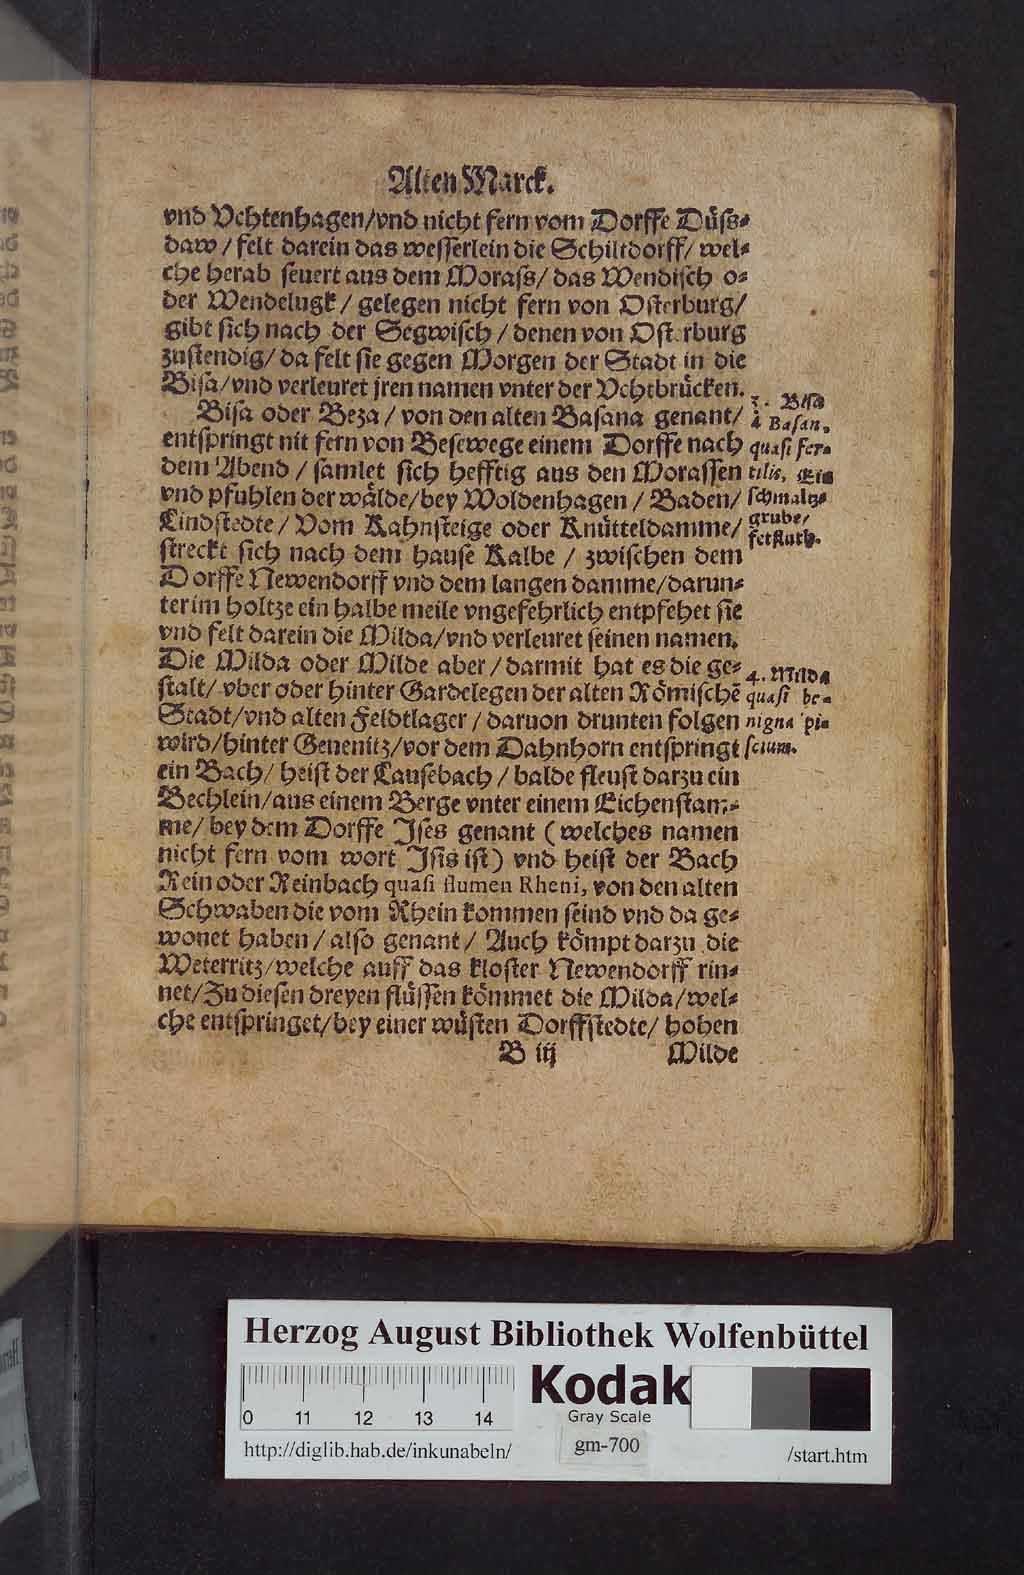 Alten Marck.
vnd Vchtenhagen/vnd nicht fern vom Dorffe Düss-
daw/felt darein das wesserlein die Schiltdorff/wel-
che herab seuert aus dem Morass/das Wendisch o-
der Wendelugk/gelegen nicht fern von Osterburg/
gibt sich nach der Segwisch/denen von Osterburg
zustendig/da felt sie gegen Morgen der Stadt in die
Bisa/vnd verleuret jren namen vnter der Vchtbrücken.
Bisa oder Beza/von den alten Basana genant/
entspringt nit fern von Besewege einem Dorffe nach
dem Abend/samlet sich hefftig aus den Morassen
vnd pfuhlen der wälde/bey Woldenhagen/Baden/
Lindstedte/Vom Kahnsteige oder Knütteldamme/
streckt sich nach dem hause Kalbe/zwischen dem
Dorffe Newendorff vnd dem langen damme/darun-
ter im holtze ein halbe meile vngefehrlich entpfehet sie
vnd felt darein die Milda/vnd verleuret seinen namen.
Die Milda oder Milde aber/darmit hat es die ge-
stalt/vber oder hinter Gardelegen der alten Römischē
Stadt/vnd alten Feldtlager/daruon drunten folgen
wird/hinter Genenitz/vor dem Dahnhorn entspringt
ein Bach/heist der Lausebach/balde fleust darzu ein
Bechlein/aus einem Berge vnter einem Eichenstam-
me/bey dem Dorffe Ises genant (welches namen
nicht fern vom wort Isis ist) vnd heist der Bach
Rein oder Reinbach quasi flumen Rheni, von den alten
Schwaben die vom Rhein kommen seind vnd da ge-
wonet haben/also genant/Auch kömpt darzu die
Weterritz/welche auff das kloster Newendorff rin-
net/Zu diesen dreyen flüssen kömmet die Milda/wel-
che entspringet/bey einer wüsten Dorffstedte/hohen
B iij
Milde
3. Bisa
à Basan.
quasi fer-
tilis, Ein
schmaltz-
grube/
fetfluth.
4. Milda
quasi be-
nigna pi-
scium.
Herzog August Bibliothek Wolfenbüttel
0 11 12 13 14
Kodak
Gray Scale
http://diglib.hab.de/inkunabeln/
gm-700
/start.htm